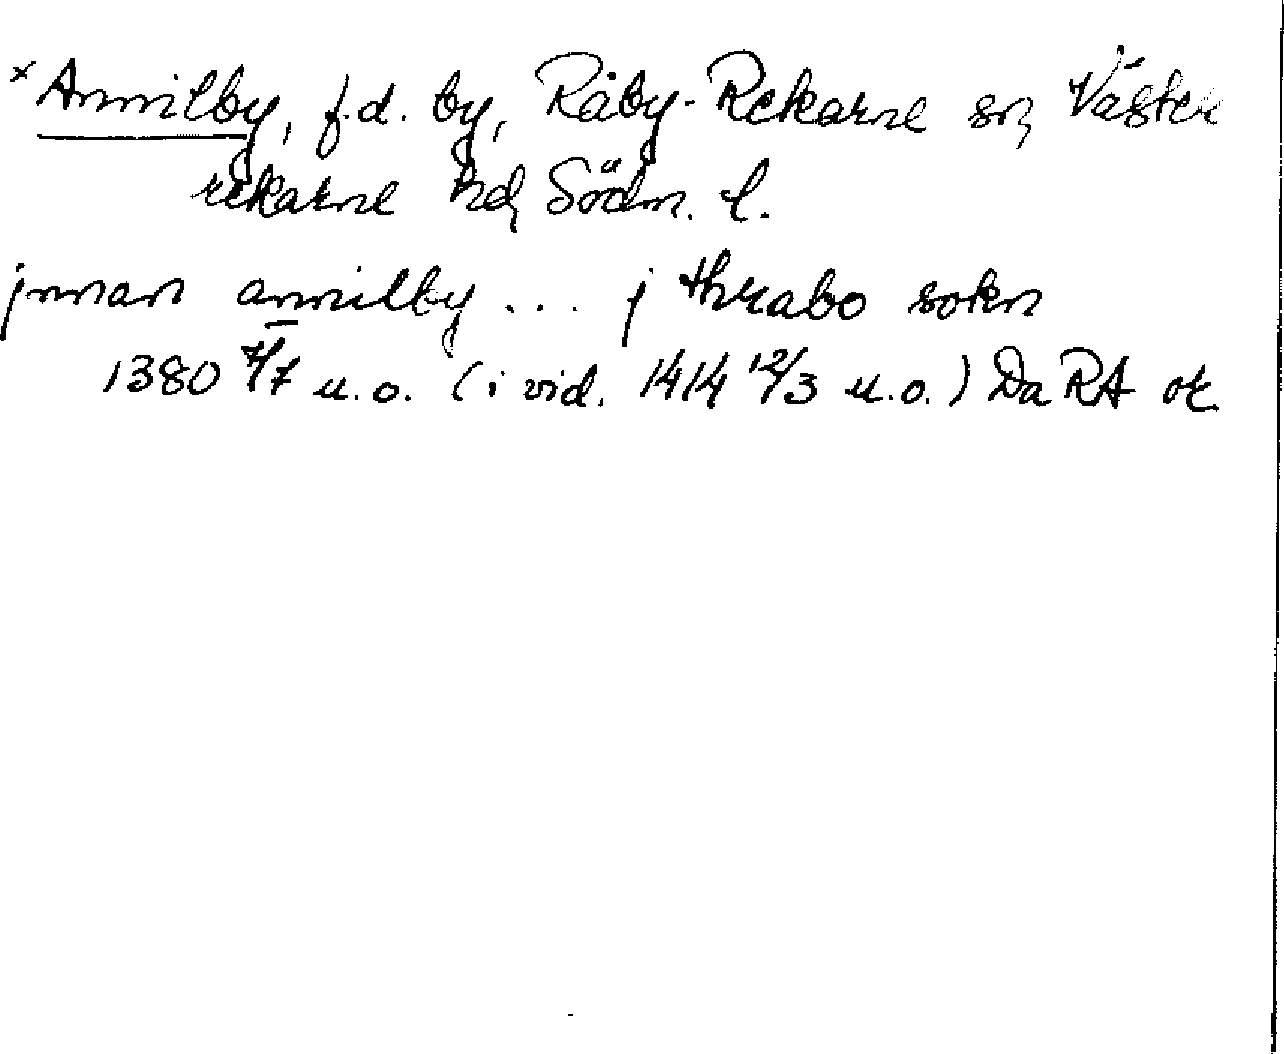 x Anmilby, f.d. by, Råby-Rekarne sn, Väster
rekarne hd, Södm. l.
jnnan anmilby ... j thrabo sokn
1380 7/7 u.o. (i vid. 1414 12/3 u.o.) Da RA or.